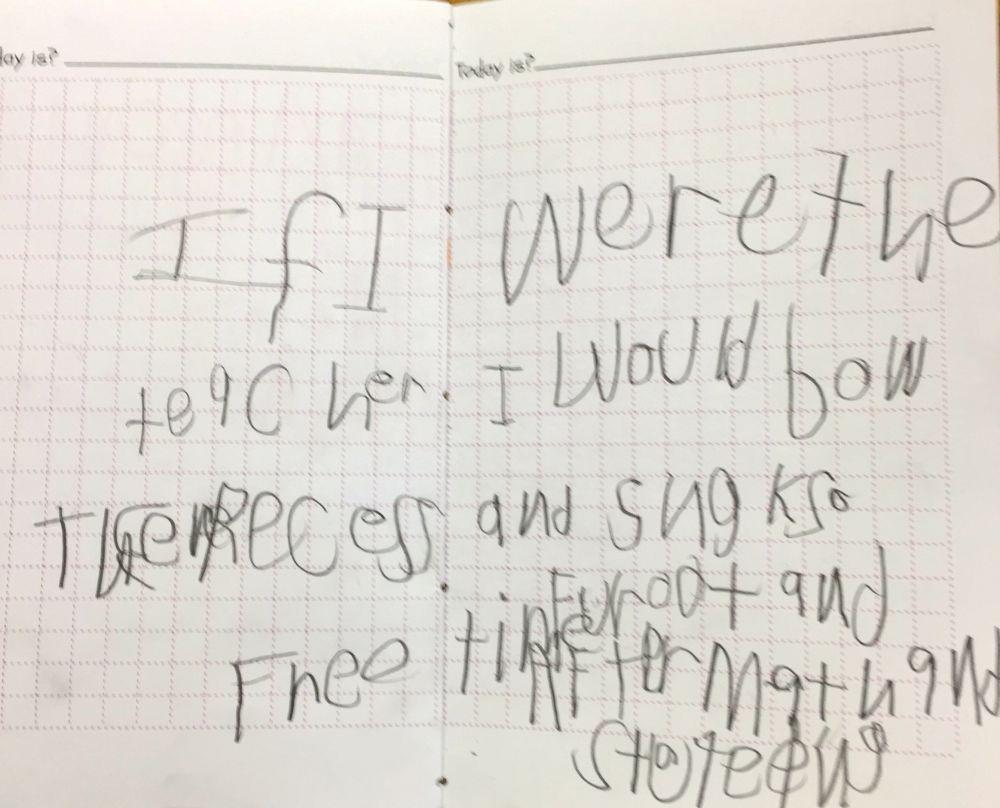 ay is?
Today is?
If I were the
teacher. I would bow
recess and sngkso
Furoot and
Free time
After Math and